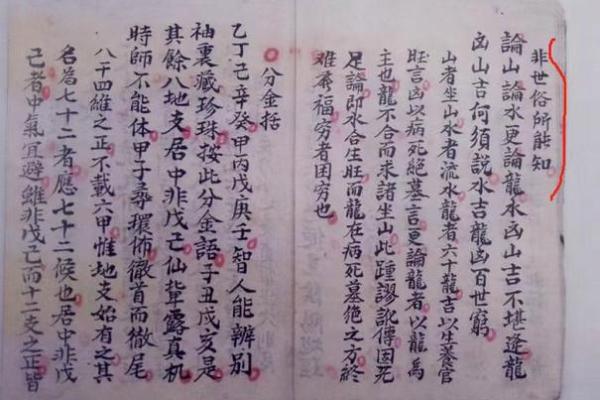 非世俗所能知
論山論水更論龍水凶山吉不堪逢龍
凶山吉何須說水吉龍凶百世窮
山者坐山水者流水龍者六十龍吉以生養官
旺言凶以病死絕墓言更論龍者以龍為
主也龍不合而求諸坐山此踵謬訛傳固无
足論即水合生旺而龍在病死墓絕之方終
难言福穷者困穷也
分金括
乙丁己辛癸甲丙戊庚子智人能辨别
袖裏藏珍珠按此分金語子丑戌亥是
其餘八地支居中非戊己仙辈露真机
時師不能体甲子尋環佈徹首而徹尾
八干四維之正不載六甲惟地支始有之其
名為七十二者應七十二候也居中非戊
己者中氣宜避雖非戊己而十二支之正皆